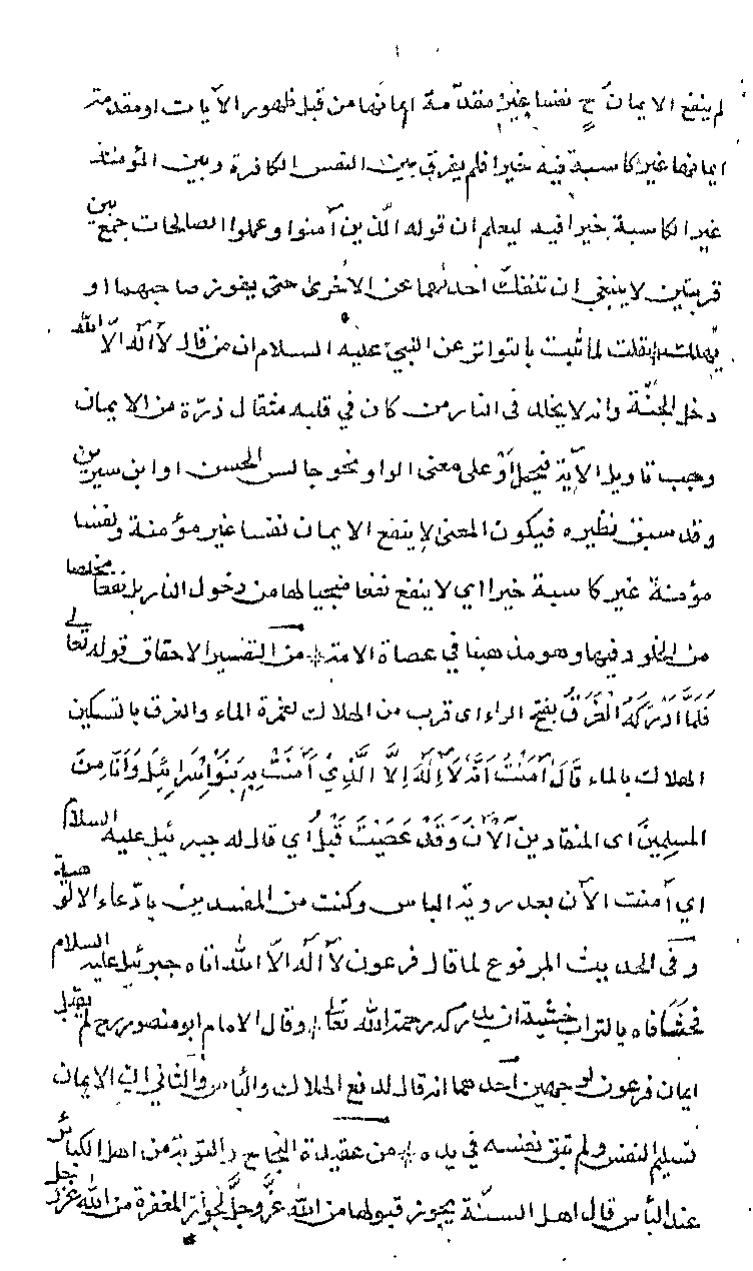 لم ينفع الايمان ح نفسا غير مقدمة ايمانها من قبل ظهور الآيات او مقدمة
ايمانها غير كاسبة فيه خيرا فلم يفرق بين النفس الكافرة وبين المؤمنة
غير الكاسبة خيرا فيه ليعلم ان قوله الّذين آمنوا وعملوا الصالحات جمع بين
قرينتين لا ينبغي ان تنفكّ احدٰهما عن الاخرىٰ حتى يفوز صاحبهما او
يهلك قلت لما ثبت بالتواتر عن النبي عليه السلام ان من قال لآ اله الّا الله
دخل الجنّة وانه لا يخلد فى النار من كان في قلبه مثقال ذرّة من الايمان
وجب تاويل الآية فيحمل أوْ على معنى الواو نحو جالس الحسن او ابن سيرين
وقد سبق نظيره فيكون المعنى لا ينفع الايمان نفسا غير مؤمنة ونفسا
مؤمنة غير كاسبة خيرا اي لا ينفع نفعا منجيا لها من دخول النار بل نفعا مخلصا
من الخلود فيها وهو مذهبنا في عصاة الامة من التفسير الاحقاق قوله تعالى
فَلَمَّا اَدْرَكَهُ الْغَرَقُ بفتح الراء اى قرب من الهلاك لغمرة الماء والغرق بالتسكين
الهلاك بالماء قَالَ آمَنْتُ اَنَّهُ لَآ اِلٰهَ اِلَّا الَّذِي آمَنَتْ بِهِ بَنُوٓا اِسْرَائِيلَ وَاَنَا مِنَ
المسلِمِينَ اى المنقادين آلْآنَ وَقَدْ عَصَيْتَ قَبْلُ أي قال له جبرئيل عليه السلام
اي آمنت الآن بعد روية الباس وكنت من المفسدين بادّعاء الالوهية
وفى الحديث المرفوع لما قال فرعون لآ اله الّا الله اتاه جبرئيل عليه السلام
فحشَا فاه بالتراب خشية ان يدركه رحمة الله تعالى وقال الامام ابو منصور رح لم يقبل
ايمان فرعون لوجهين احدهما انه قال لدفع الهلاك والبأس والثاني ان الايمان
تسليم النفس ولم تبق نفسه في يده من عقيدة النجاح والتوبة من اهل الكبائر
عند البأس قال اهل السنّة يجوز قبولها من الله عزّ وجلّ لجواز المغفرة من الله عز وجل